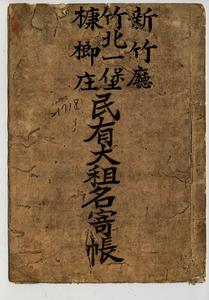 新竹廳
竹北一堡
槺榔庄
民有大租名寄帳